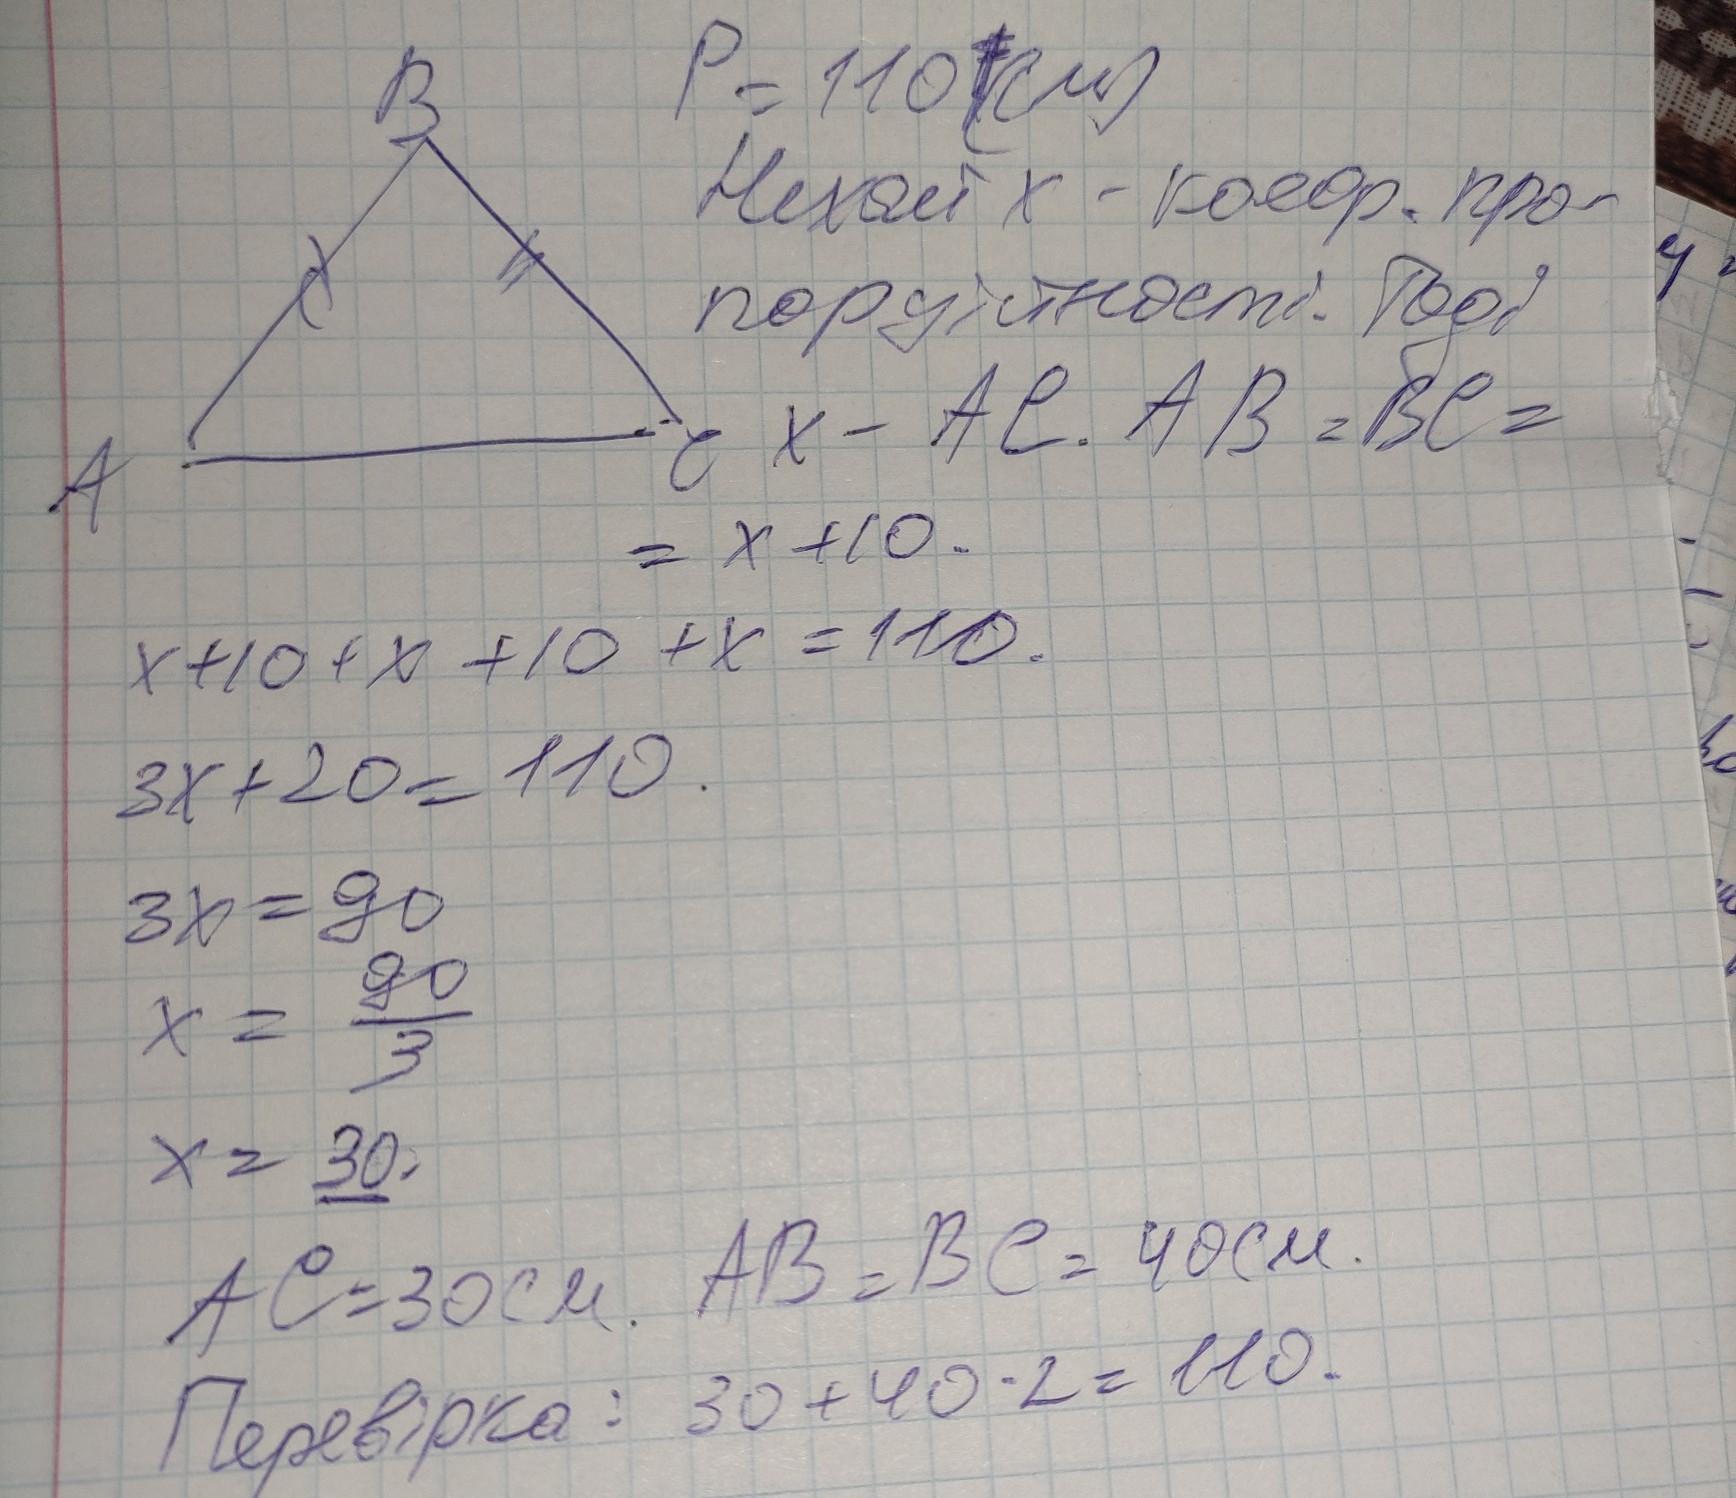 B
P = 110 (см)
Нехай x - коеф. про-
порційності. Тоді
x - AC. AB = BC =
A
C
= x + 10.
x + 10 + x + 10 + x = 110.
3x + 20 = 110.
3x = 90
x = 90/3
x = 30.
AC = 30 см. AB = BC = 40 см.
Перевірка: 30 + 40 · 2 = 110.